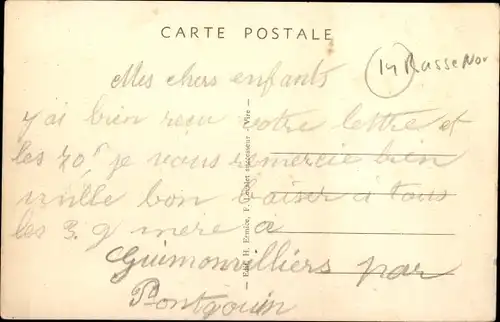 CARTE POSTALE
14 Basse Nor
Mes chers enfants
j'ai bien reçu votre lettre et
les 70f je vous remercie bien
mille bon baiser à tous
les 3. g mere à
Guimonvilliers par
Pontgouin
Edit. H. Ermice, F. successeur - Vire